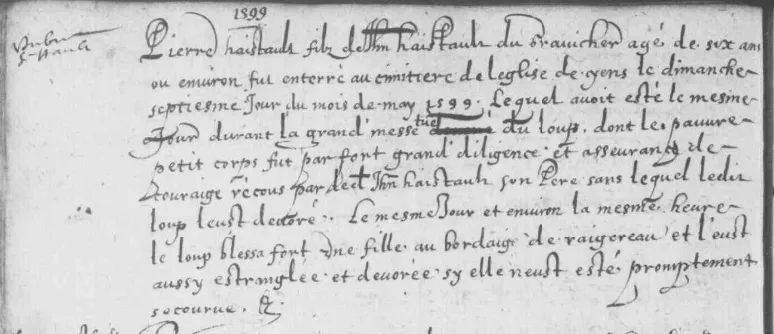 1599
Pierre haistault filz de Jhn haistault du Gravicher agé de six ans
ou environ fut enterré au cimitiere de leglise de cyens le dimanche
septiesme Jour du mois de may 1599. Lequel avoit esté le mesme
Jour durant la grand messe tué du loup, dont le pauvre
petit corps fut par fort grand diligence et asseurance de
couraige récous par led Jhn haistault son Pere sans lequel ledit
loup leust devoré. Le mesme Jour et environ la mesme heure
le loup blessa fort une fille au bordaige de raigereau et l'eust
aussy estranglee et devorée sy elle neust esté promptement
secourue.